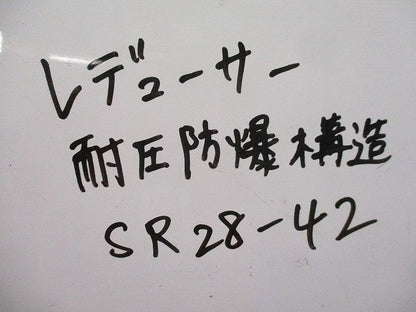 レデューサー
耐圧防爆構造
SR28-42